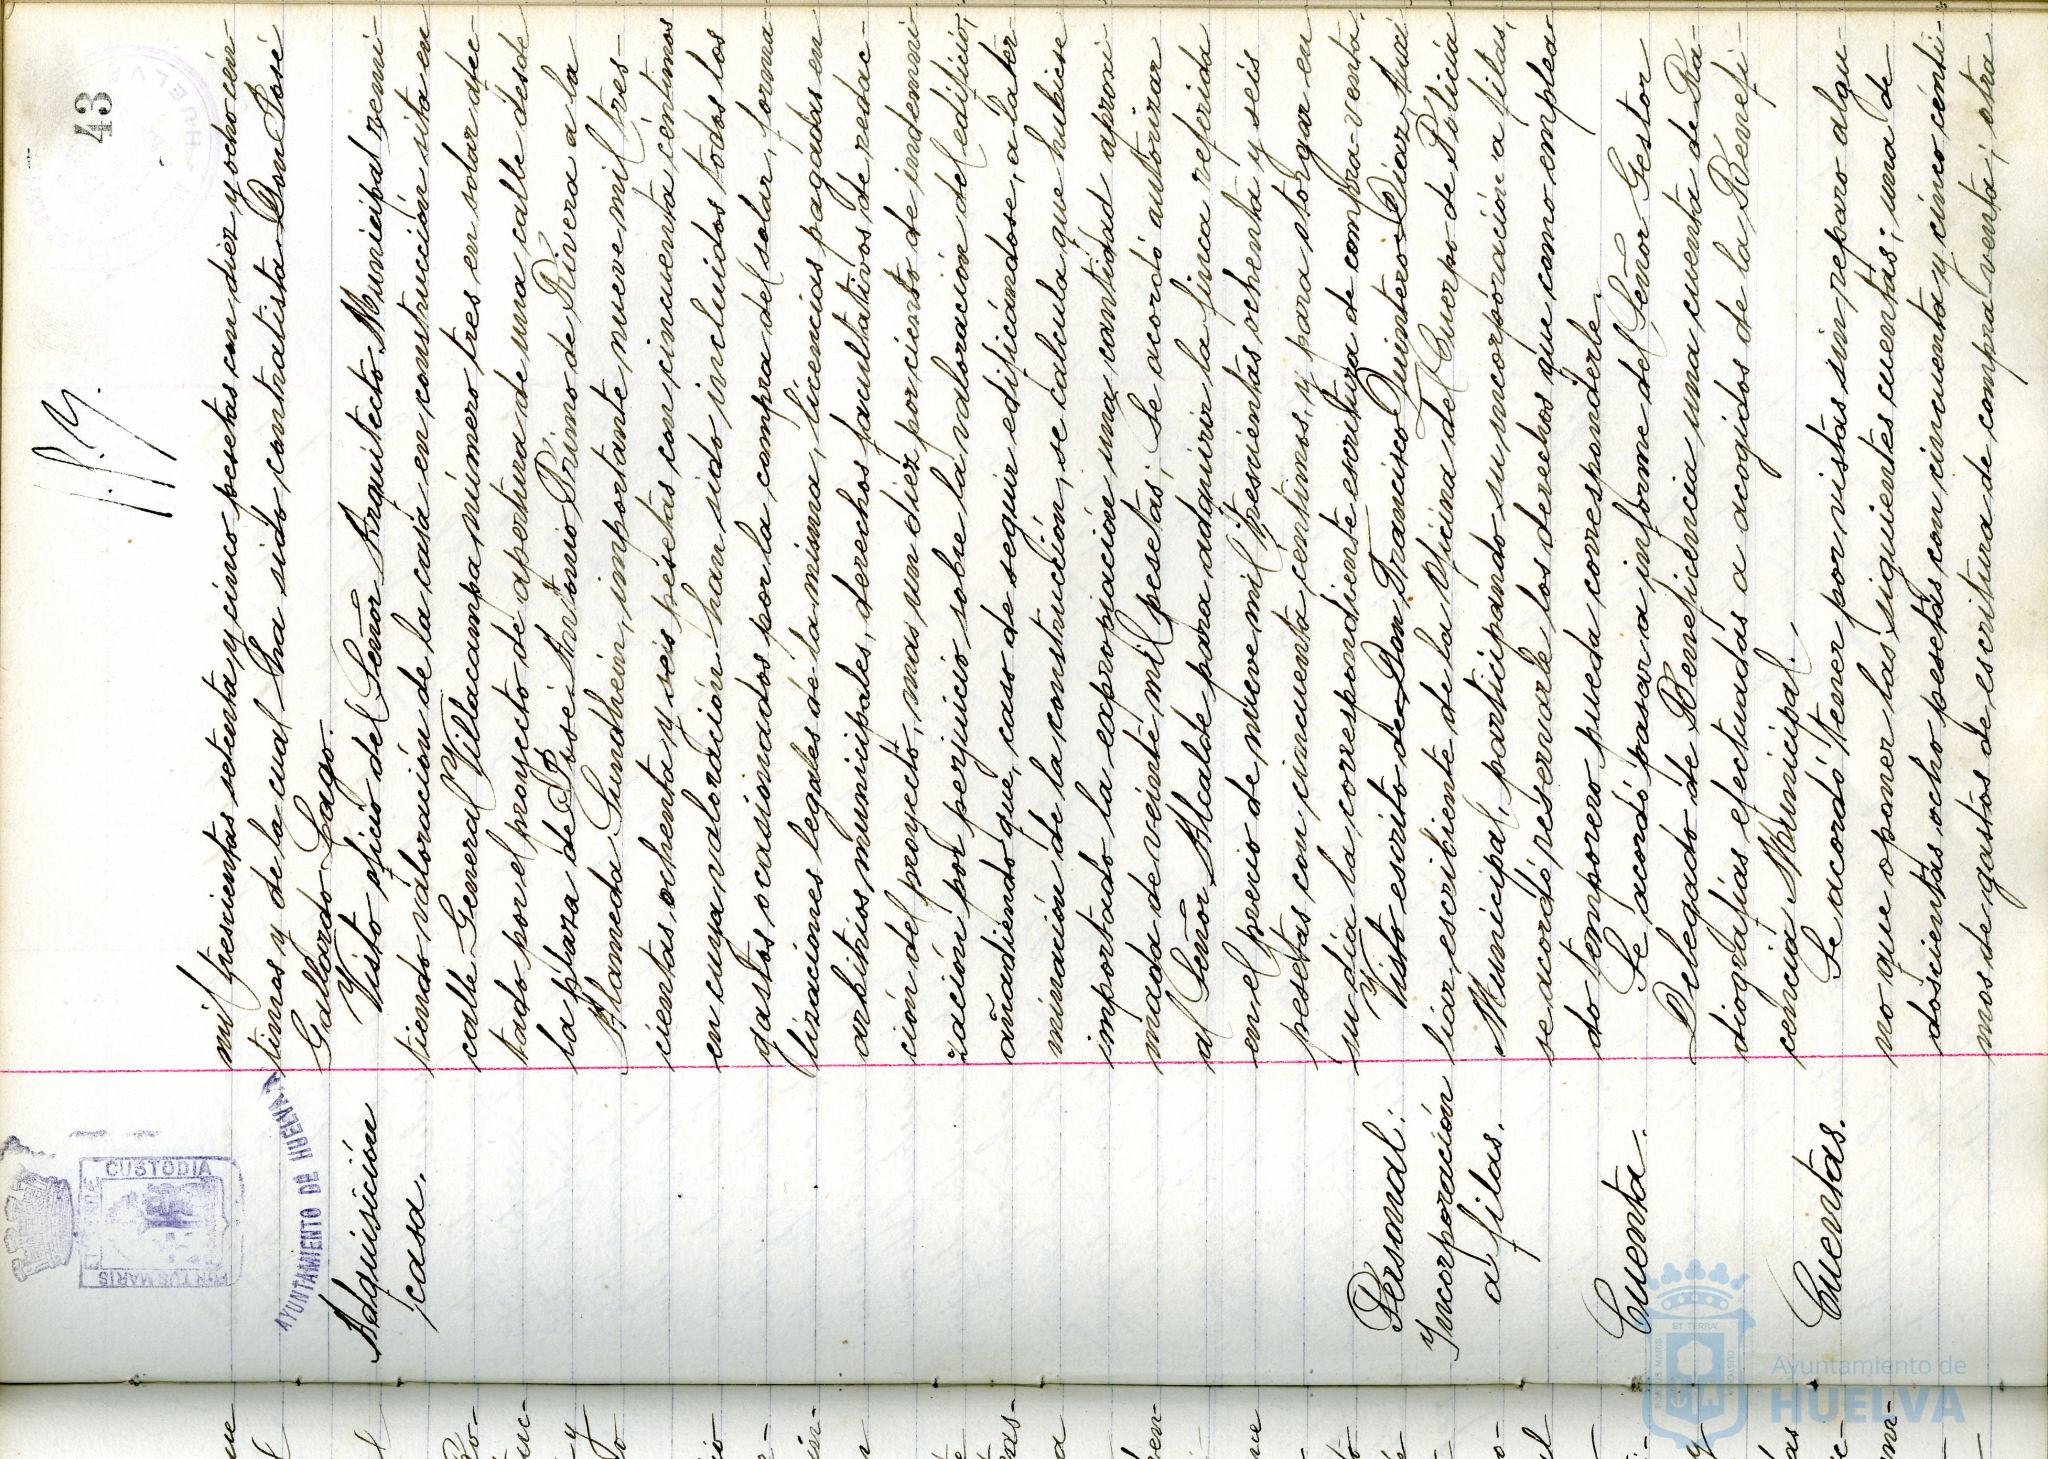 43
mil trescientas setenta y cinco pesetas con diez y ocho cén-
timos y de la cual ha sido contratista Don José
Gallardo Lago.
Adquisición
casa.
Visto oficio del Señor Arquitecto Municipal remi-
tiendo valoración de la casa en construcción sita en
calle General Villacampa número tres en solar afec-
tado por el proyecto de apertura de una calle desde
la plaza de José Antonio Primo de Rivera a la
Alameda Sundheim, importante nueve mil tres-
cientas ochenta y seis pesetas con cincuenta céntimos
en cuya valoración han sido incluidos todos los
gastos ocasionados por la compra del solar, forma-
lizaciones legales de la misma, licencias pagadas en
arbitrios municipales, derechos facultativos de redac-
ción del proyecto, mas un diez por ciento de indemni-
zación por perjuicio sobre la valoración del edificio,
añadiendo que, caso de seguir edificándose, a la ter-
minación de la construcción, se calcula que hubiese
importado la expropiación una cantidad aproxi-
mada de veinte mil pesetas; Se acordó autorizar
al Señor Alcalde para adquirir la finca referida
en el precio de nueve mil trescientas ochenta y seis
pesetas con cincuenta céntimos, y para otorgar en
su día la correspondiente escritura de compra-venta.
Personal:
Yncorporación
a filas.
Visto escrito de Don Francisco Quintero Díaz Auxi
liar escribiente de la Oficina del Cuerpo de Policía
Municipal, participando su incorporación a filas,
se acordó reservarle los derechos que como emplea-
do temporero pueda corresponderle.
Cuenta.
Se acordó pasar a informe del Señor Gestor
Delegado de Beneficencia una cuenta de Ra-
diografías efectuadas a acogidos de la Benefi-
cencia Municipal.
Cuentas.
Se acordó tener por vistas sin reparo algu-
no que oponer las siguientes cuentas; una de
doscientas ocho pesetas con cincuenta y cinco cénti-
mos de gastos de escritura de compra venta; otra
AYUNTAMIENTO DE HUELVA
CUSTODIA
PORTUS MARIS
HUELVA
Ayuntamiento de
HUELVA